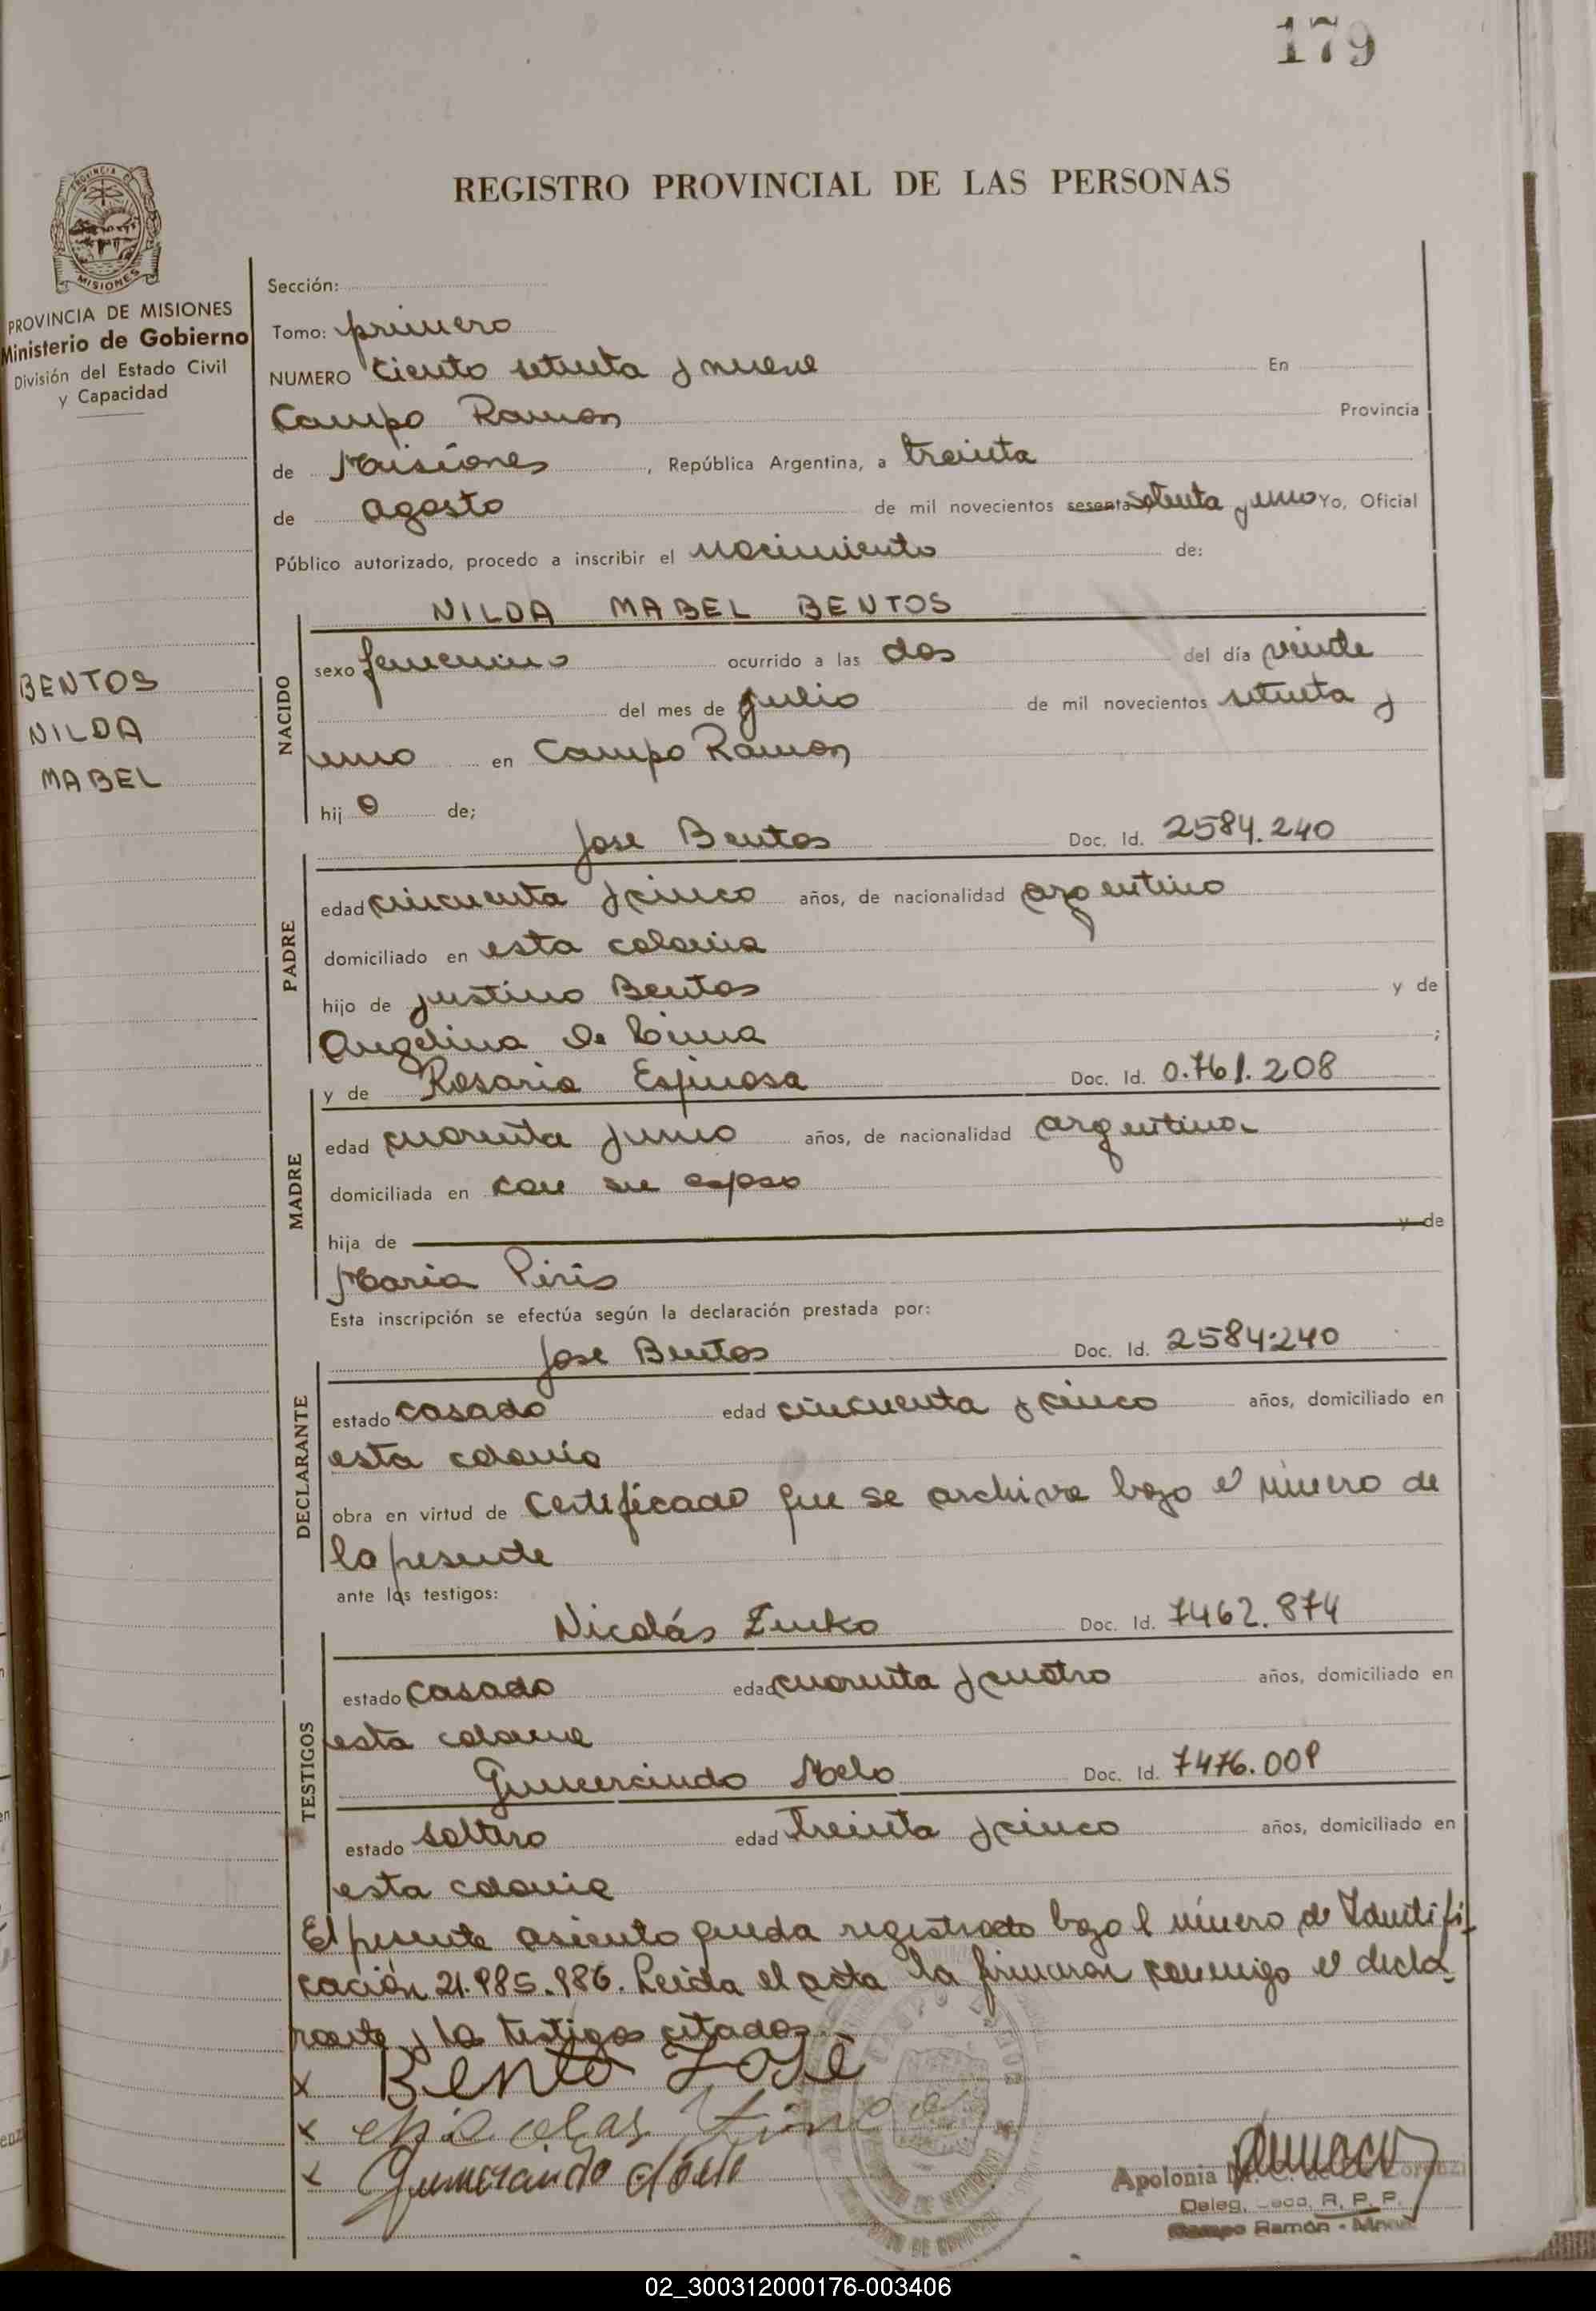 179
REGISTRO PROVINCIAL DE LAS PERSONAS
PROVINCIA DE
MISIONES
PROVINCIA DE MISIONES
Ministerio de Gobierno
División del Estado Civil
y Capacidad
BENTOS
NILDA
MABEL
Sección:
Tomo: primero
NUMERO Ciento setenta y nueve En
Campo Ramon Provincia
de Misiones, República Argentina, a treinta
de agosto de mil novecientos sesenta setenta y uno Yo, Oficial
Público autorizado, procedo a inscribir el nacimiento de:
NILDA MABEL BENTOS
NACIDO
sexo femenino ocurrido a las dos del día veinte
del mes de julio de mil novecientos setenta y
uno en Campo Ramon
hij a de;
Jose Bentos Doc. Id. 2584.240
PADRE
edad cincuenta y cinco años, de nacionalidad argentino
domiciliado en esta colonia
hijo de Justino Bentos y de
Angelina de Lima;
y de Rosaria Espinosa Doc. Id. 0.761.208
MADRE
edad cuarenta y uno años, de nacionalidad argentina
domiciliada en con su esposo
hija de y de
Maria Piris
Esta inscripción se efectúa según la declaración prestada por:
Jose Bentos Doc. Id. 2584.240
DECLARANTE
estado casado edad cincuenta y cinco años, domiciliado en
esta colonia
obra en virtud de Certificado que se archiva bajo el número de
la presente
ante los testigos:
Nicolás Doc. Id. 7462.874
TESTIGOS
estado casado edad cuarenta y cuatro años, domiciliado en
esta colonia
Gumercindo Melo Doc. Id. 7476.009
estado soltero edad treinta y cinco años, domiciliado en
esta colonia
El presente asiento queda registrado bajo el número de Identifi
cación 21.985.986. Leida el acta la firman conmigo el decla
rante y los testigos citados.
x Bento José
x
x Gumercindo Melo
Apolonia
Deleg. R. P. P.
Campo Ramón - Mnes.
02_300312000176-003406